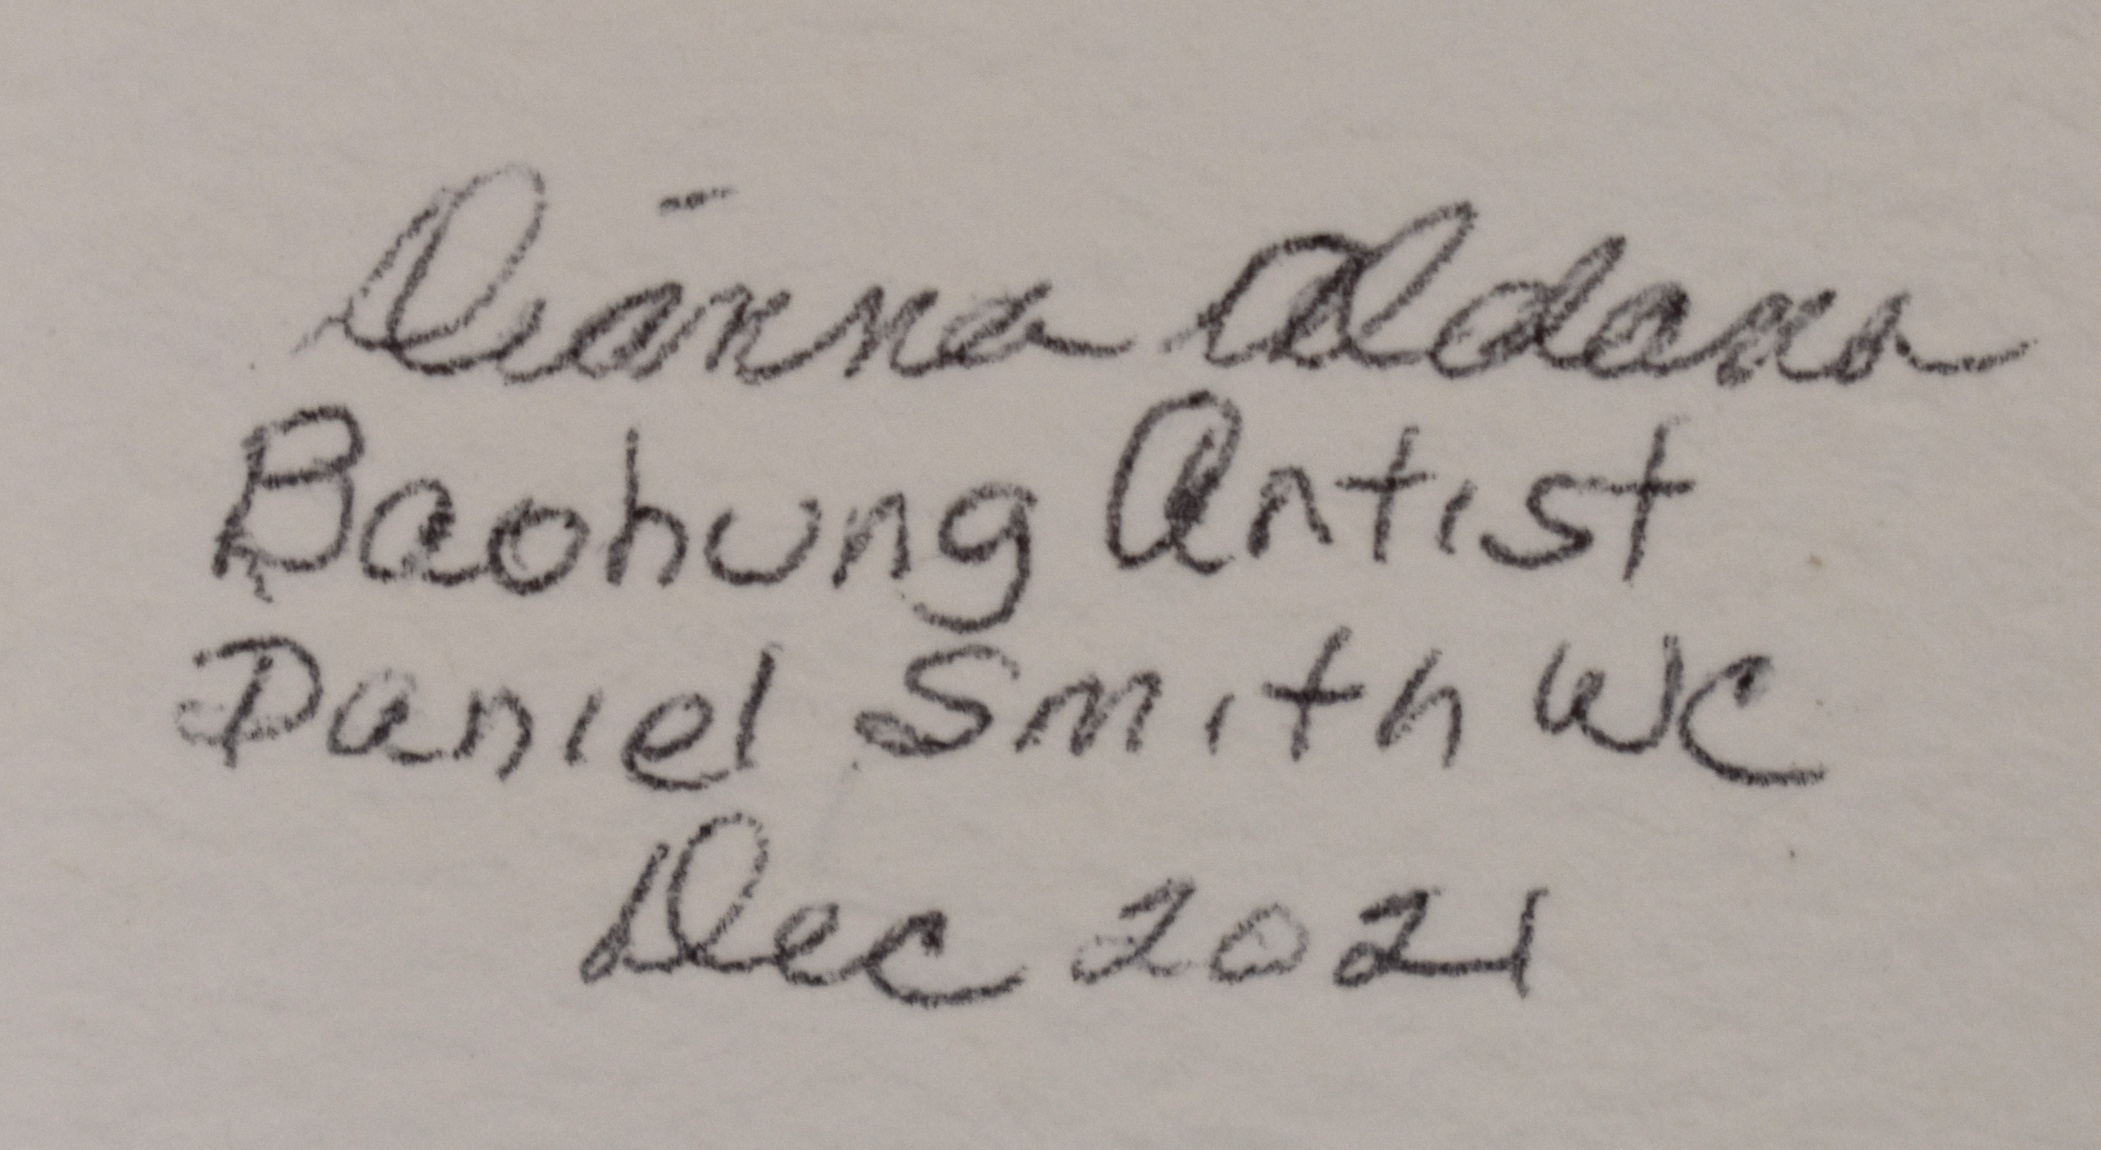 Dianna Aldana
Baohung Artist
Daniel Smith WC
Dec 2021